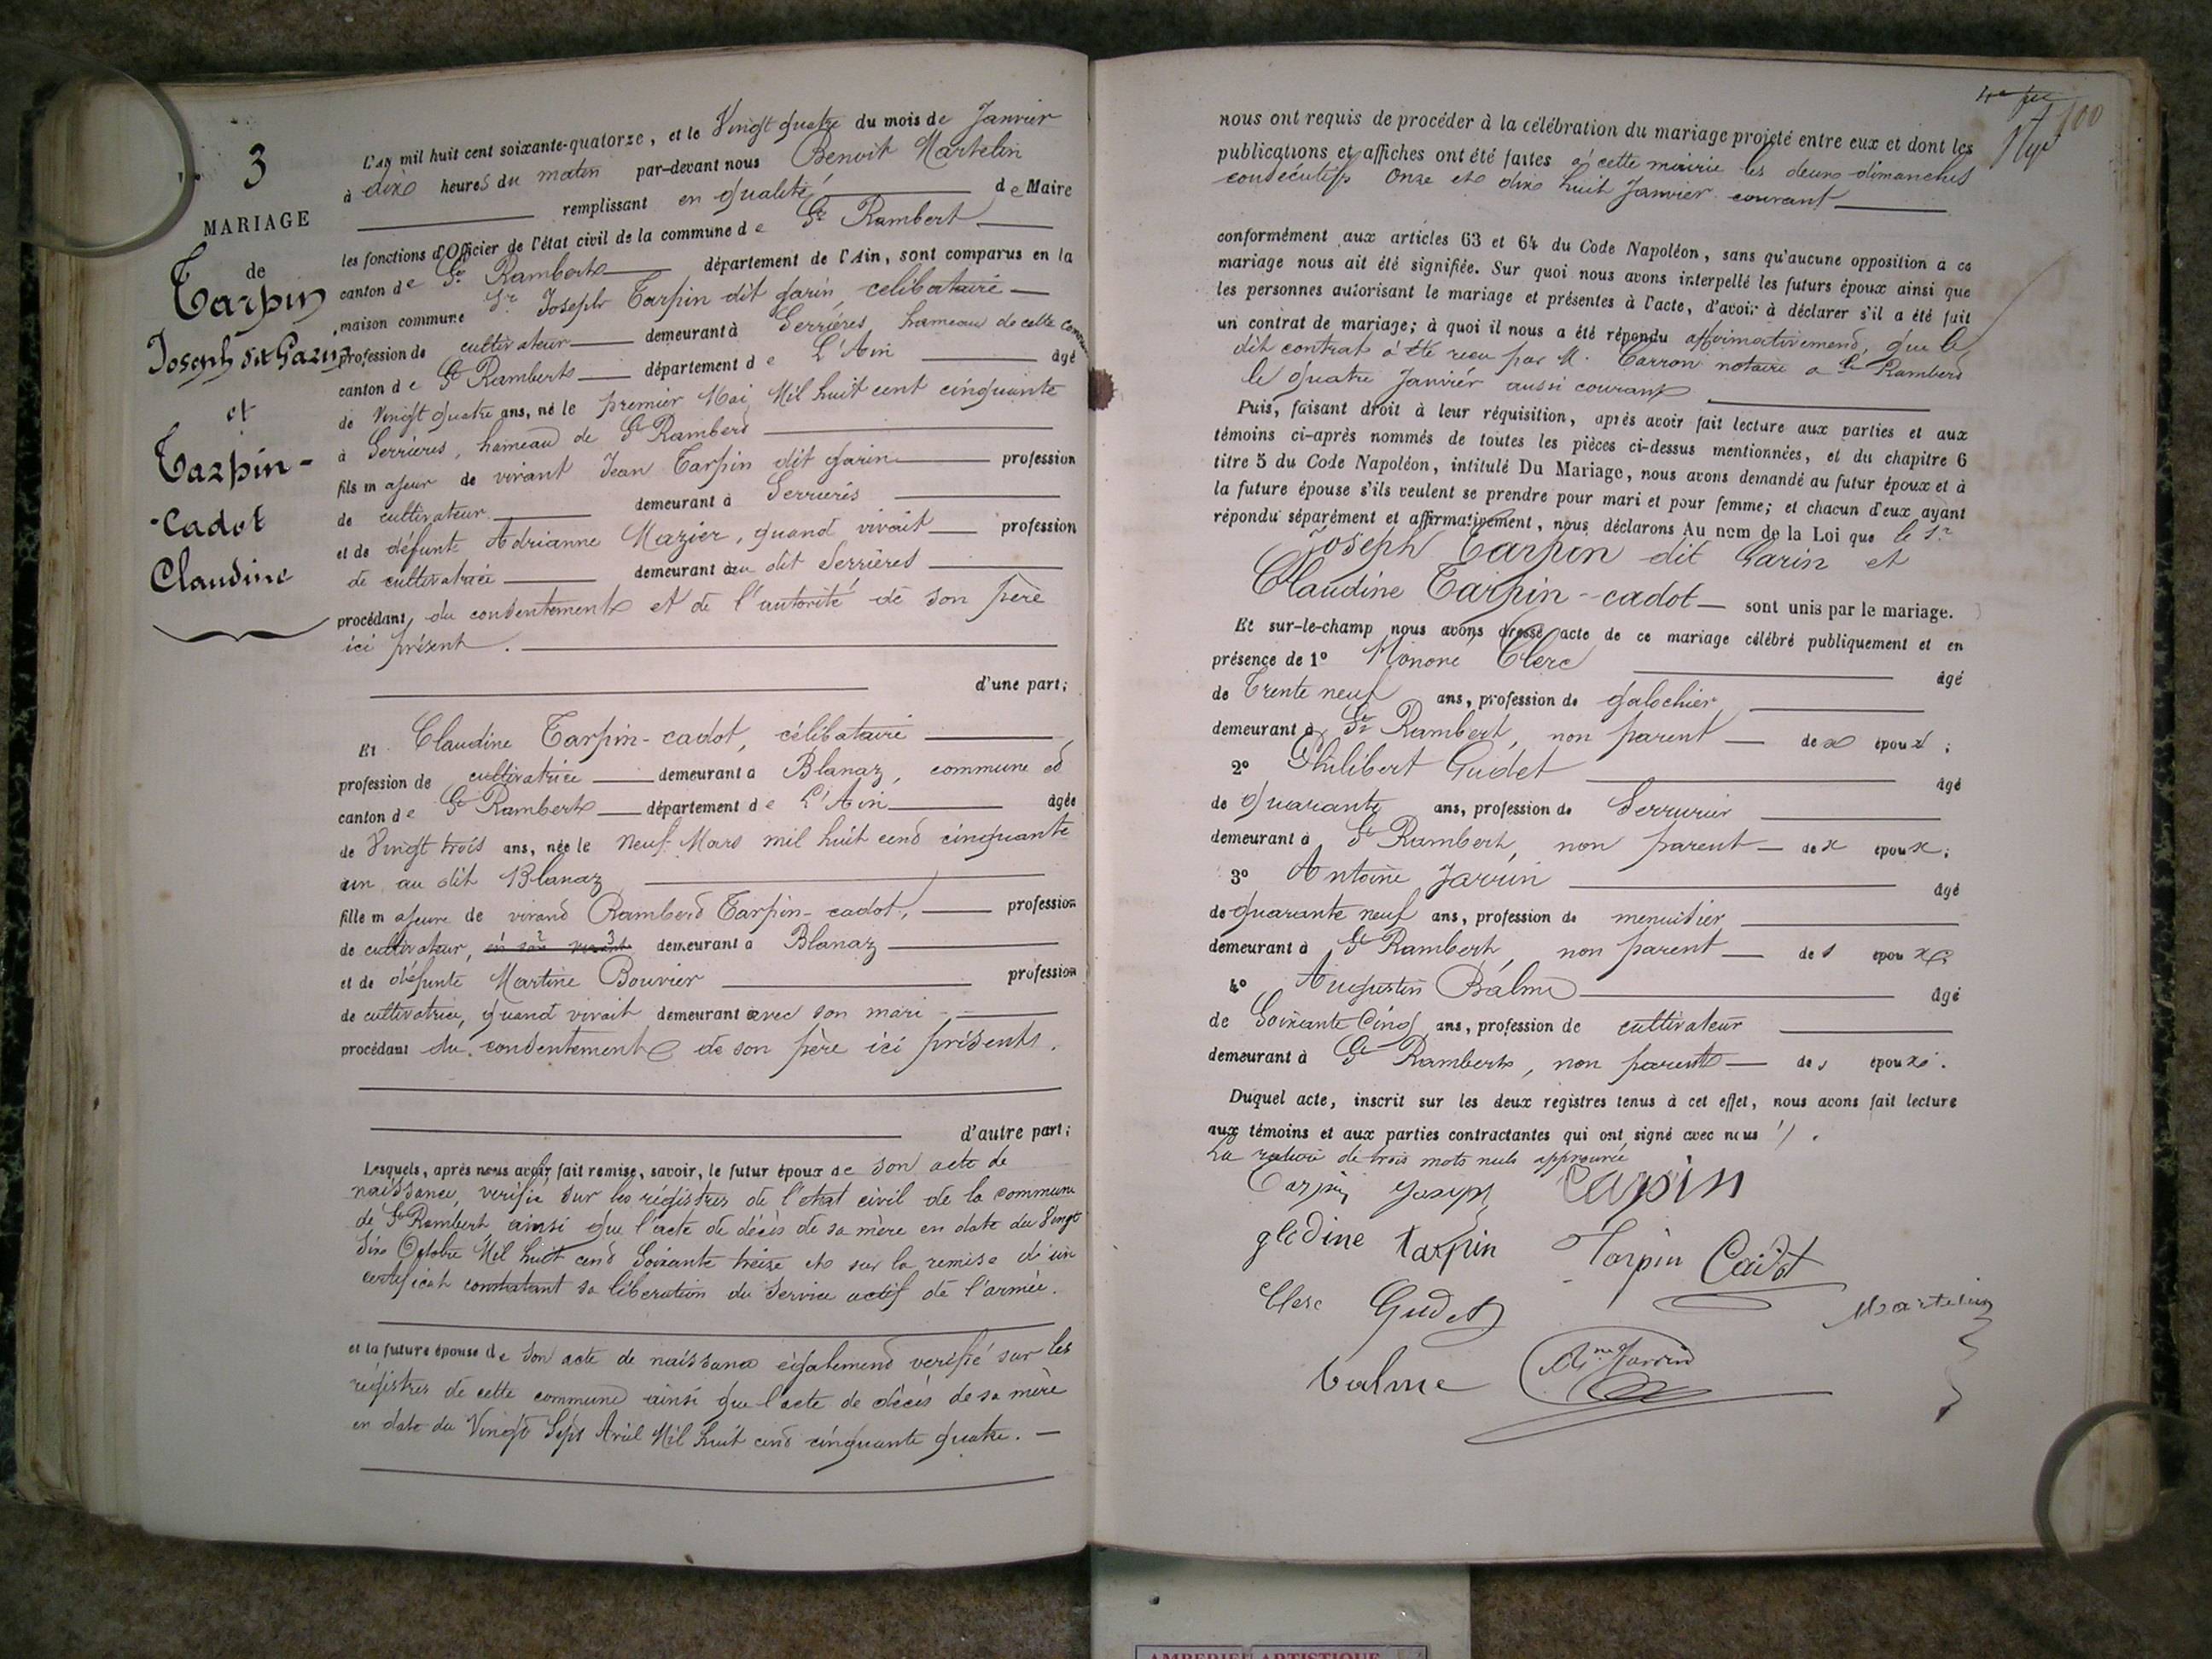 3
MARIAGE
de
Tarpin
Joseph dit Garin
et
Tarpin-
-Cadot
Claudine
L'an mil huit cent soixante-quatorze, et le Vingt quatre du mois de Janvier
à dix heures du matin par-devant nous Benoit Martelin
remplissant en qualité de Maire
les fonctions d'Officier de l'état civil de la commune de St Rambert
canton de St Rambert département de l'Ain, sont comparus en la
maison commune Sr Joseph Tarpin dit garin, celibataire
profession de cultivateur demeurant à Serrières, hameau de cette commune
canton de St Rambert département de L'Ain âgé
de Vingt quatre ans, né le premier Mai Mil huit cent cinquante
à Serrières, hameau de St Rambert
fils majeur de vivant Jean Tarpin dit garin profession
de cultivateur demeurant à Serrières
et de défunte Adrianne Mazier, quand vivait profession
de cultivatrice demeurant au dit Serrières
procédant du consentement et de l'autorité de son père
ici présent.
d'une part;
Et Claudine Tarpin-cadot, célibataire
profession de cultivatrice demeurant à Blanaz, commune et
canton de St Rambert département de L'Ain âgée
de Vingt trois ans, née le neuf Mars mil huit cent cinquante
un au dit Blanaz
fille majeure de vivant Rambert Tarpin-cadot, profession
de cultivateur, demeurant à Blanaz
et de défunte Martine Bouvier profession
de cultivatrice, quand vivait demeurant avec son mari
procédant du consentement de son père ici présent.
d'autre part;
Lesquels, après nous avoir fait remise, savoir, le futur époux de son acte de
naissance, verifié sur les régistres de l'état civil de la commune
de St Rambert ainsi que l'acte de décès de sa mère en date du Vingt
dix Octobre Mil huit cent Soixante treize et sur la remise d'un
certificat constatant sa libération du Service actif de l'armée.
et la future épouse de son acte de naissance également verifié sur les
régistres de cette commune ainsi que l'acte de décès de sa mère
en date du Vingt Sept Avril Mil huit cent cinquante quatre.
100
nous ont requis de procéder à la célébration du mariage projeté entre eux et dont les
publications et affiches ont été faites à cette mairie les deux dimanches
consécutifs Onze et dix huit Janvier courant
conformément aux articles 63 et 64 du Code Napoléon, sans qu'aucune opposition à ce
mariage nous ait été signifiée. Sur quoi nous avons interpellé les futurs époux ainsi que
les personnes autorisant le mariage et présentes à l'acte, d'avoir à déclarer s'il a été fait
un contrat de mariage; à quoi il nous a été répondu affirmativement, que le
dit contrat a été reçu par M. Carron notaire a St Rambert
le quatre Janvier aussi courant
Puis, faisant droit à leur réquisition, après avoir fait lecture aux parties et aux
témoins ci-après nommés de toutes les pièces ci-dessus mentionnées, et du chapitre 6
titre 5 du Code Napoléon, intitulé Du Mariage, nous avons demandé au futur époux et à
la future épouse s'ils veulent se prendre pour mari et pour femme; et chacun d'eux ayant
répondu séparément et affirmativement, nous déclarons Au nom de la Loi que le Sr
Joseph Tarpin dit Garin et
Claudine Tarpin-cadot sont unis par le mariage.
Et sur-le-champ nous avons dressé acte de ce mariage célébré publiquement et en
présence de 1° Honoré Clerc âgé
de Trente neuf ans, profession de galochier
demeurant à St Rambert, non parent des époux;
2° Philibert Gudet âgé
de quarante ans, profession de Serrurier
demeurant à St Rambert, non parent des époux;
3° Antoine Jarrin âgé
de quarante neuf ans, profession de menuisier
demeurant à St Rambert, non parent des époux;
4° Augustin Balme âgé
de Soixante Cinq ans, profession de cultivateur
demeurant à St Rambert, non parent des époux.
Duquel acte, inscrit sur les deux registres tenus à cet effet, nous avons fait lecture
aux témoins et aux parties contractantes qui ont signé avec nous.
La rature de trois mots nuls approuvée
Tarpin Joseph Tarpin
glodine tarpin Tarpin Cadot
Clerc Gudet Martelin
balme Ane Jarrin
AMBERIEU ARTISTIQUE